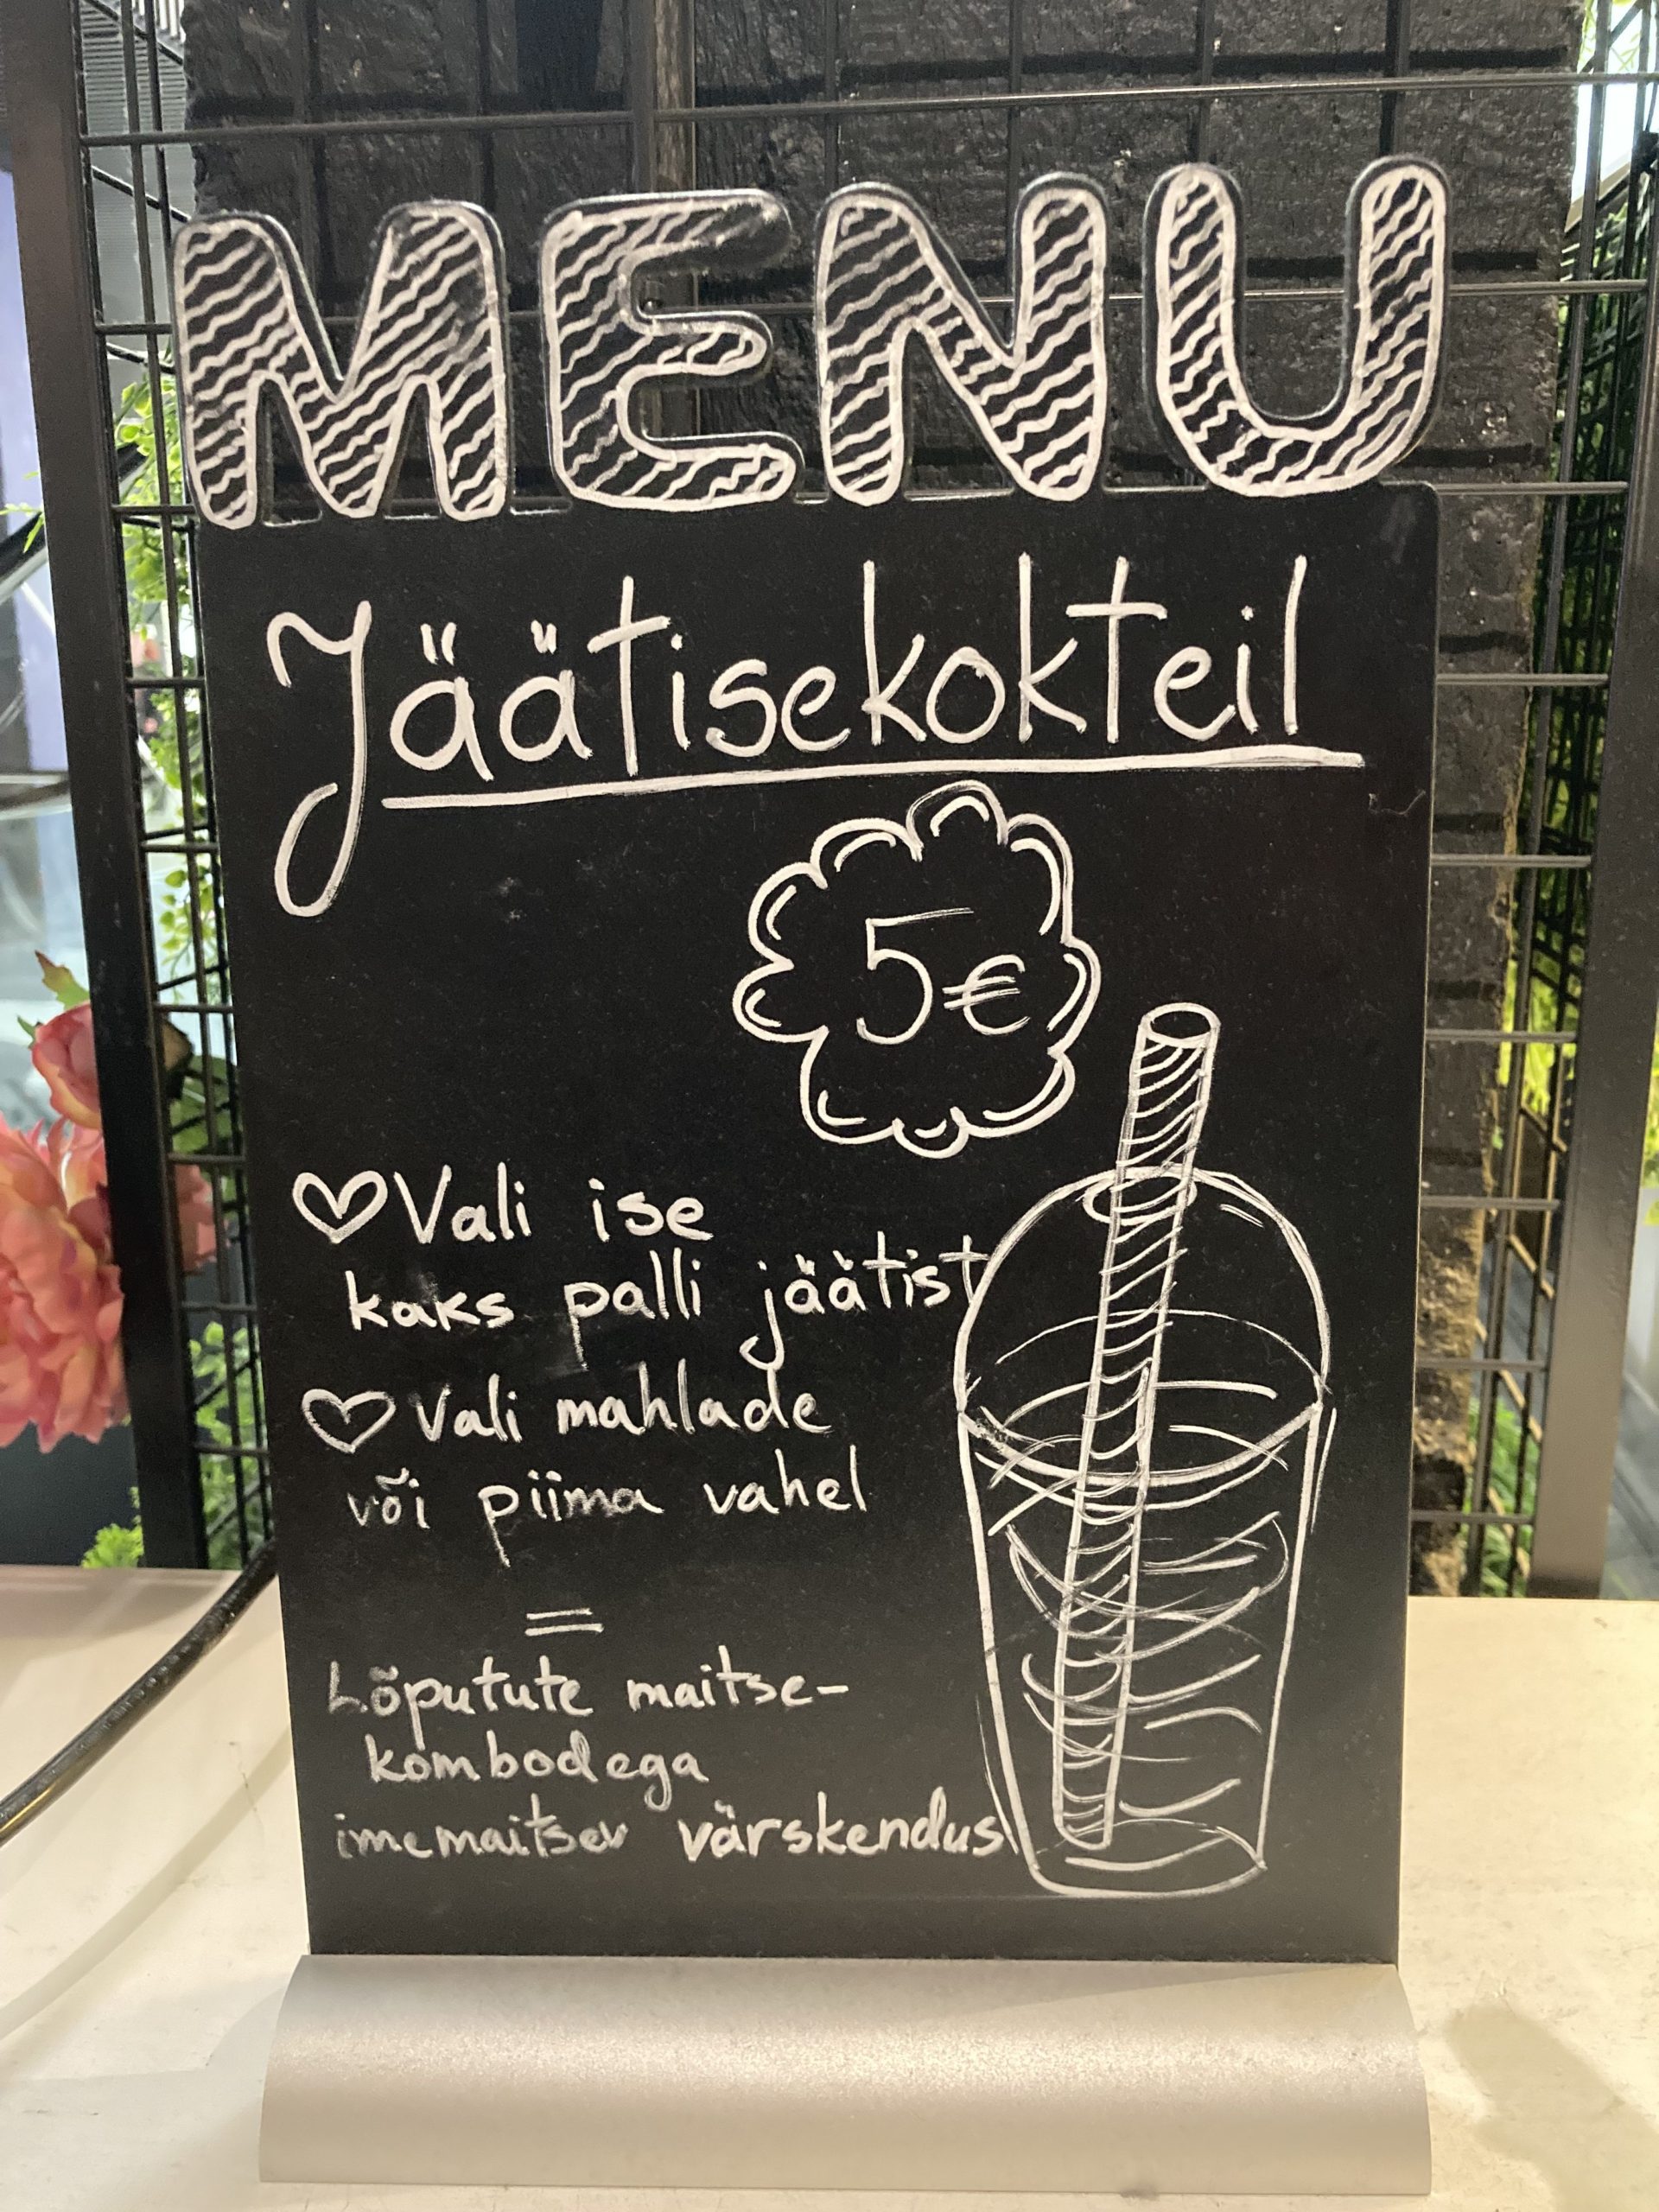 MENU
Jäätisekokteil
5€
♡Vali ise
kaks palli jäätist
♡Vali mahlade
või piima vahel
=
Lõputute maitse-
kombodega
imemaitsev värskendus